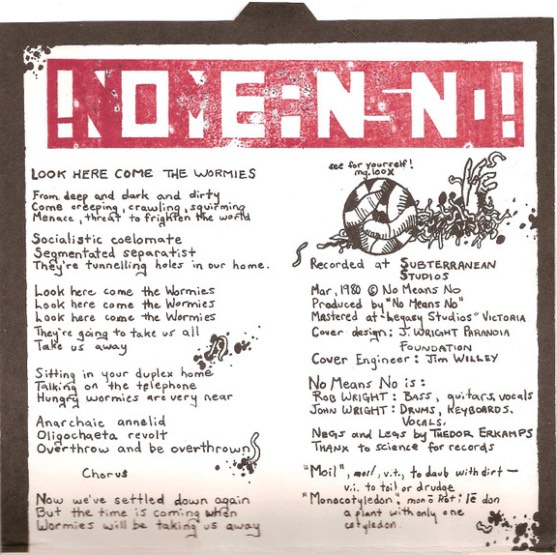 !NOMEANSNO!
LOOK HERE COME THE WORMIES
From deep and dark and dirty
Come creeping, crawling, squirming
Menace, threat to frighten the world
Socialistic coelomate
Segmentated separatist
They're tunnelling holes in our home.
Look here come the Wormies
Look here come the Wormies
Look here come the Wormies
They're going to take us all
Take us away
Sitting in your duplex home
Talking on the telephone
Hungry wormies are very near
Anarchaic annelid
Oligochaeta revolt
Overthrow and be overthrown
Chorus
Now we've settled down again
But the time is coming when
Wormies will be taking us away
see for yourself!
mg. 100X
Recorded at SUBTERRANEAN
STUDIOS
Mar, 1980 © No Means No
Produced by "No Means No"
Mastered at "Legasy Studios" VICTORIA
Cover design: J. WRIGHT PARANOIA
FOUNDATION
Cover Engineer: JIM WILLEY
No Means No is:
ROB WRIGHT: BASS, guitars, vocals
JOHN WRIGHT: DRUMS, KEYBOARDS,
VOCALS.
NEGS and LEGS by THEDOR ERKAMPS
THANX to science for records
"Moil", moil, v.t., to daub with dirt —
v.i. to toil or drudge
"Monocotyledon";
a plant with only one
cotyledon.